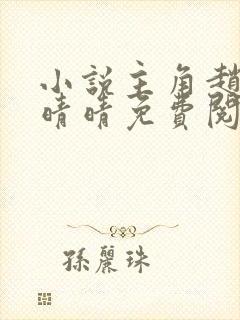 小說主角趙
晴晴免費閱
孫麗珠